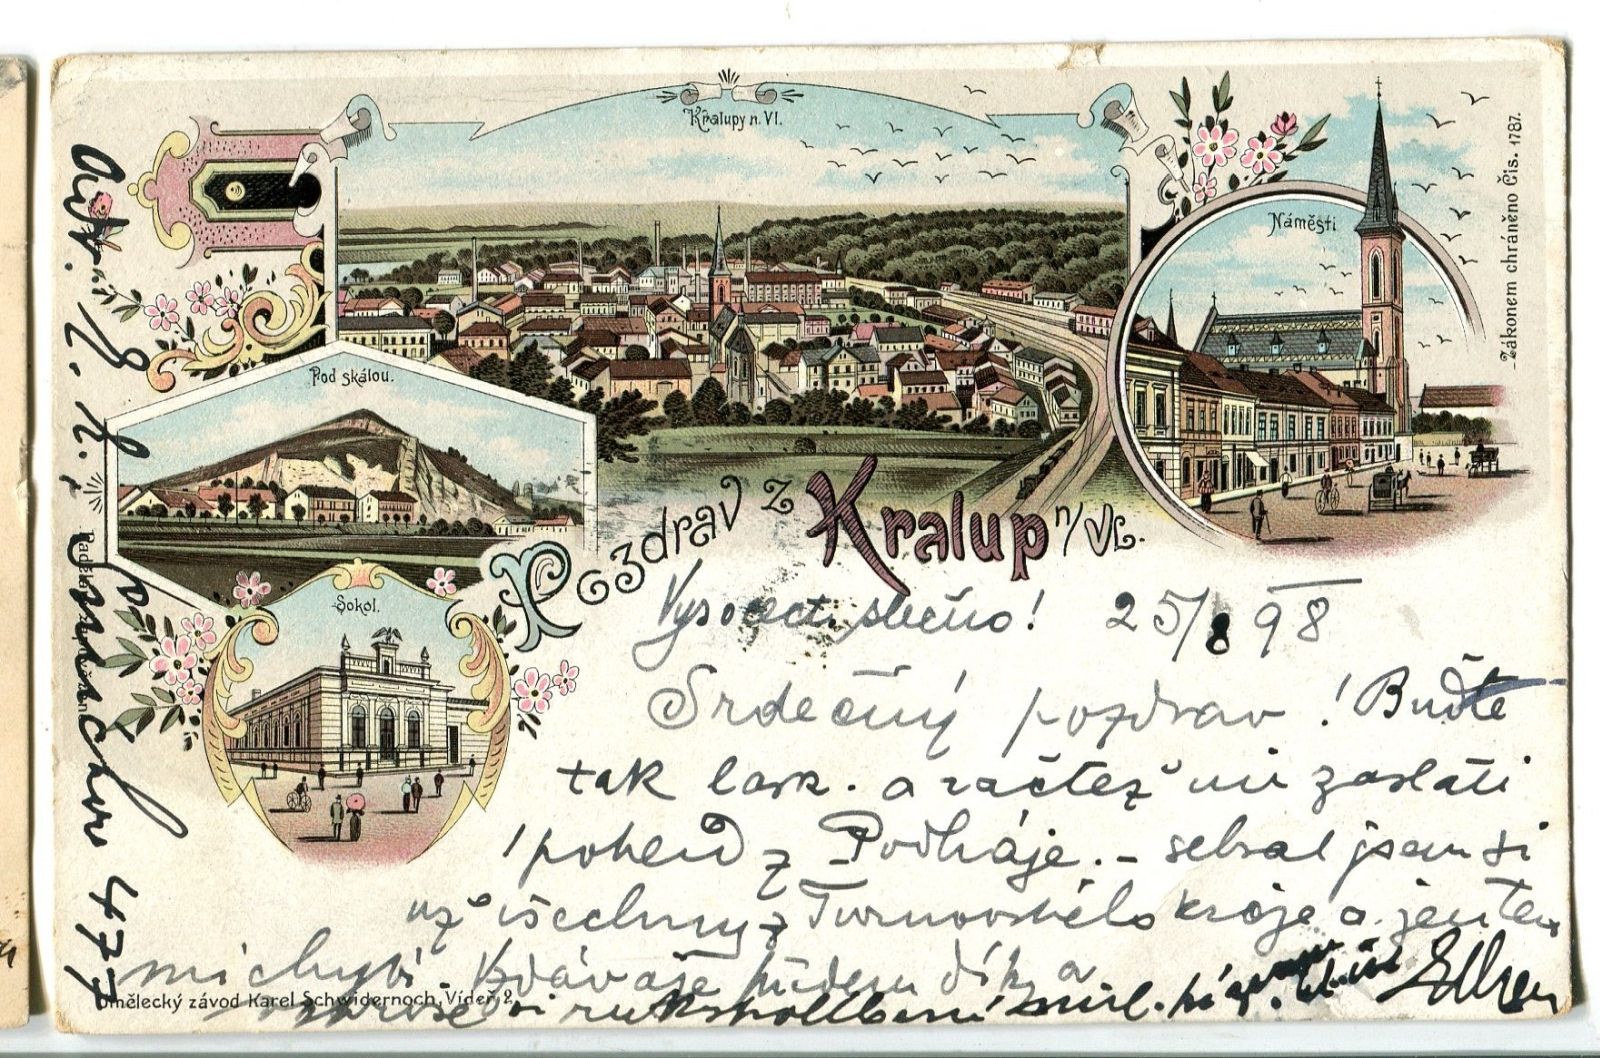 Kralupy n. Vl.
Náměstí
Zákonem chráněno Čís. 1787.
Pod skálou.
Pozdrav z Kralup n/Vl.
Sokol.
Vysoct. slečno! 25/8 98
Srdečný pozdrav! Buďte
tak lask. a račtež mi zaslati
pohled z Podháje. – sebral jsem si
už všechny z Turnovského kraje a jen ten
mi chybí. Vzdávaje předem díky a
477
Umělecký závod Karel Schwidernoch, Vídeň 2.